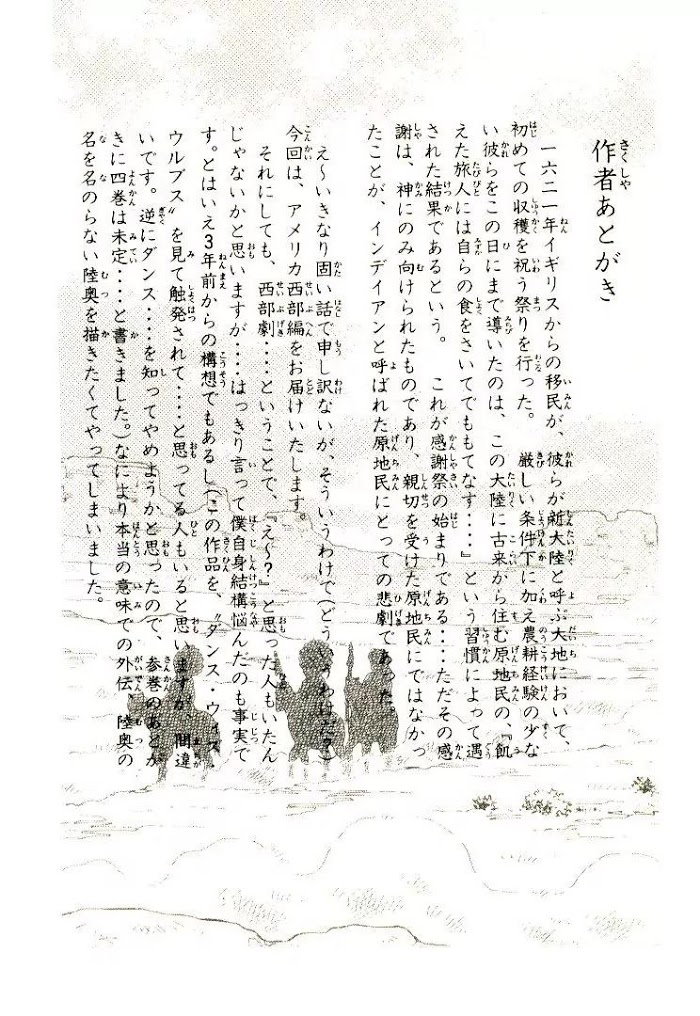 作者あとがき
一六二一年イギリスからの移民が、彼らが新大陸と呼ぶ大地において、
初めての収穫を祝う祭りを行った。　厳しい条件下に加え農耕経験の少な
い彼らをこの日にまで導いたのは、この大陸に古来から住む原地民の、『飢
えた旅人には自らの食をさいてでももてなす‥‥』という習慣によって遇
された結果であるという。　これが感謝祭の始まりである‥‥ただその感
謝は、神にのみ向けられたものであり、親切を受けた原地民にではなかっ
たことが、インデイアンと呼ばれた原地民にとっての悲劇であった。
え〜いきなり固い話で申し訳ないが、そういうわけで(どういうわけだ？)
今回は、アメリカ西部編をお届けいたします。
それにしても、西部劇‥‥ということで、『え〜？』と思った人もいたん
じゃないかと思いますが‥‥はっきり言って僕自身結構悩んだのも事実で
す。とはいえ３年前からの構想でもあるし(この作品を、〝ダンス・ウィズ・
ウルブス〟を見て触発されて‥‥と思ってる人もいると思いますが、間違
いです。逆にダンス‥‥を知ってやめようかと思ったので、参巻のあとが
きに四巻は未定‥‥と書きました。)なにより本当の意味での外伝、陸奥の
名を名のらない陸奥を描きたくてやってしまいました。